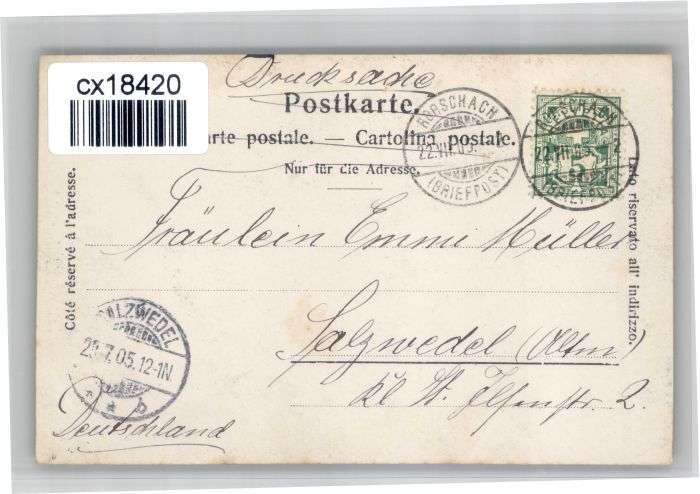 cx18420
Drucksache
Postkarte.
arte postale. — Cartolina postale.
Nur für die Adresse.
Côté réservé à l'adresse.
Lato riservato all' indirizzo.
RORSCHACH
22.VII.05.
(BRIEFPOST)
RORSCHACH
22.VII.05.
(BRIEFPOST)
Fräulein Emmi Müller
Salzwedel (Altm)
kl. St. Ilsenstr. 2.
SALZWEDEL
23.7.05.12-1N
* * b
Deutschland